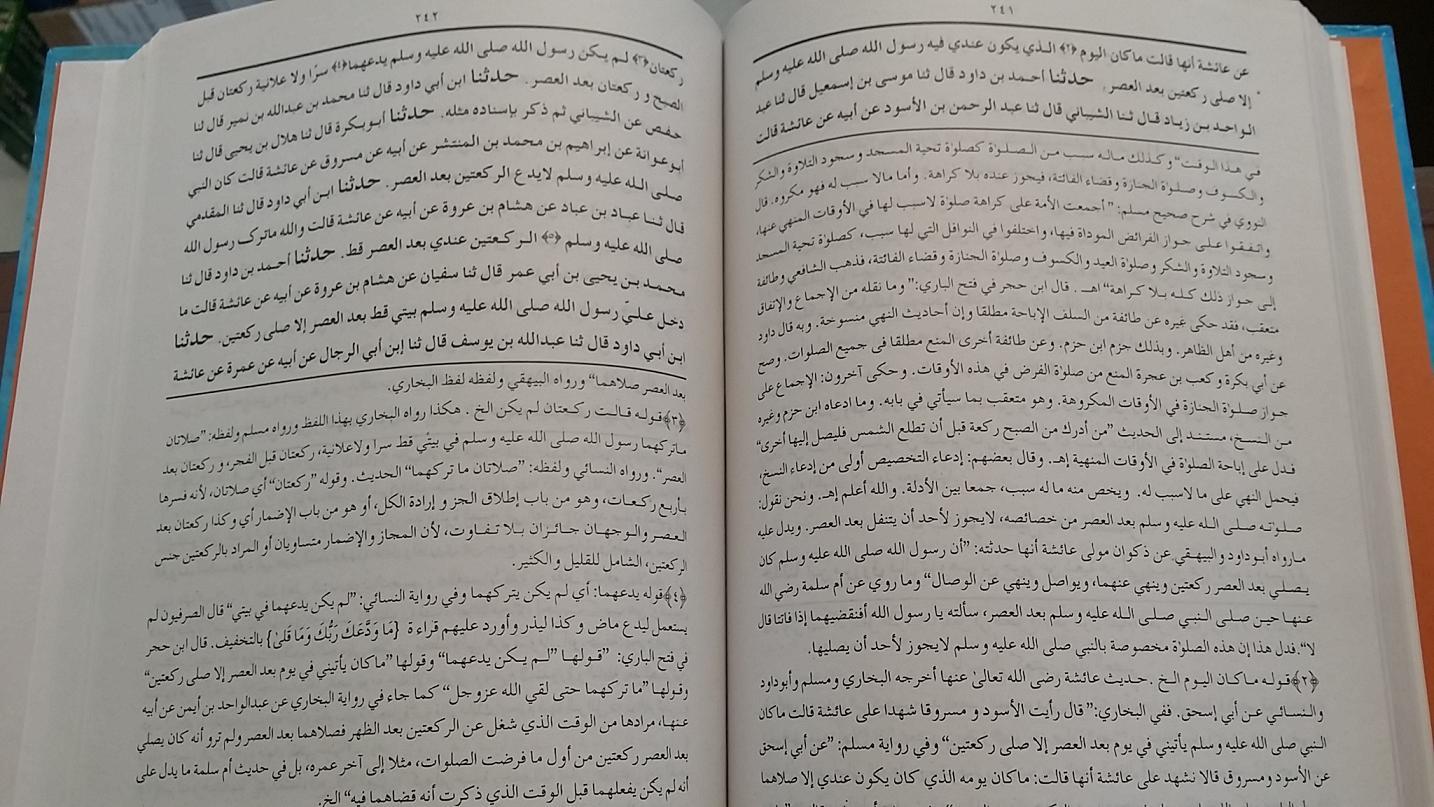 ٢٤١
عن عائشة أنها قالت ماكان اليوم ﴿٢﴾ الذي يكون عندي فيه رسول الله صلى الله عليه وسلم
إلا صلى ركعتين بعد العصر. حدثنا أحمد بن داود قال ثنا موسى بن إسمعيل قال ثنا عبد
الواحد بن زياد قال ثنا الشيباني قال ثنا عبد الرحمن بن الأسود عن أبيه عن عائشة قالت
في هذا الوقت” وكذلك ماله سبب من الصلوٰة كصلوٰة تحية المسجد وسجود التلاوة والشكر
والكسوف وصلوٰة الجنازة وقضاء الفائتة، فيجوز عنده بلا كراهة. وأما مالا سبب له فهو مكروه. قال
النووي في شرح صحيح مسلم: ”أجمعت الأمة على كراهة صلوٰة لاسبب لها في الأوقات المنهي عنها،
واتفقوا على جواز الفرائض الموداة فيها، واختلفوا في النوافل التي لها سبب، كصلوٰة تحية المسجد
وسجود التلاوة والشكر وصلوٰة العيد والكسوف وصلوٰة الجنازة و قضاء الفائتة، فذهب الشافعي وطائفة
إلى جواز ذلك كله بلا كراهة“ اهـ. قال ابن حجر في فتح الباري:” وما نقله من الإجماع والإتفاق
متعقب، فقد حكى غيره عن طائفة من السلف الإباحة مطلقا وإن أحاديث النهي منسوخة. وبه قال داود
وغيره من أهل الظاهر. وبذلك جزم ابن حزم. وعن طائفة أخرى المنع مطلقا فى جميع الصلوات. وصح
عن أبي بكرة و كعب بن عجرة المنع من صلوٰة الفرض في هذه الأوقات. وحكى آخرون: الإجماع على
جواز صلوٰة الجنازة في الأوقات المكروهة. وهو متعقب بما سيأتي في بابه. وما ادعاه ابن حزم وغيره
من النسخ، مستند إلى الحديث ”من أدرك من الصبح ركعة قبل أن تطلع الشمس فليصل إليها أخرى“
فدل على إباحة الصلوٰة في الأوقات المنهية إهـ. وقال بعضهم: إدعاء التخصيص أولى من إدعاء النسخ،
فيحمل النهي على ما لاسبب له. ويخص منه ما له سبب، جمعا بين الأدلة. والله أعلم إهـ. ونحن نقول:
صلوته صلى الله عليه وسلم بعد العصر من خصائصه، لايجوز لأحد أن يتنفل بعد العصر. ويدل عليه
مارواه أبوداود والبيهقي عن ذكوان مولى عائشة أنها حدثته: ”أن رسول الله صلى الله عليه وسلم كان
يصلي بعد العصر ركعتين وينهى عنهما، ويواصل وينهى عن الوصال“ وما روي عن أم سلمة رضي الله
عنها حين صلى النبي صلى الله عليه وسلم بعد العصر، سألته يا رسول الله أفنقضيهما إذا فاتتا قال
لا“.فدل هذا إن هذه الصلوٰة مخصوصة بالنبي صلى الله عليه وسلم لايجوز لأحد أن يصليها.
﴿٢﴾قوله ماكان اليوم الخ .حديث عائشة رضى الله تعالىٰ عنها أخرجه البخاري ومسلم وأبوداود
والنسائي عن أبي إسحق. ففي البخاري:” قال رأيت الأسود و مسروقا شهدا على عائشة قالت ماكان
النبي صلى الله عليه وسلم يأتيني في يوم بعد العصر إلا صلى ركعتين“ وفي رواية مسلم: ”عن أبي إسحق
عن الأسود ومسروق قالا نشهد على عائشة أنها قالت: ماكان يومه الذي كان يكون عندي إلا صلاهما
٢٤٢
ركعتان﴿٣﴾ لم يكن رسول الله صلى الله عليه وسلم يدعهما﴿٤﴾ سرًا ولا علانية ركعتان قبل
الصبح و ركعتان بعد العصر. حدثنا ابن أبي داود قال ثنا محمد بن عبدالله بن نمير قال ثنا
حفص عن الشيباني ثم ذكر بإسناده مثله. حدثنا أبوبكرة قال ثنا هلال بن يحيى قال ثنا
أبوعوانة عن إبراهيم بن محمد بن المنتشر عن أبيه عن مسروق عن عائشة قالت كان النبي
صلى الله عليه وسلم لايدع الركعتين بعد العصر. حدثنا ابن أبي داود قال ثنا المقدمي
قال ثنا عباد بن عباد عن هشام بن عروة عن أبيه عن عائشة قالت والله ماترك رسول الله
صلى الله عليه وسلم ﴿٥﴾ الركعتين عندي بعد العصر قط. حدثنا أحمد بن داود قال ثنا
محمد بن يحيى بن أبي عمر قال ثنا سفيان عن هشام بن عروة عن أبيه عن عائشة قالت ما
دخل عليّ رسول الله صلى الله عليه وسلم بيتي قط بعد العصر إلا صلى ركعتين. حدثنا
ابن أبي داود قال ثنا عبدالله بن يوسف قال ثنا إبن أبي الرجال عن أبيه عن عمرة عن عائشة
بعد العصر صلاهما“ ورواه البيهقي ولفظه لفظ البخاري.
﴿٣﴾قوله قالت ركعتان لم يكن الخ . هكذا رواه البخاري بهذا اللفظ ورواه مسلم ولفظه: ”صلاتان
ماتركهما رسول الله صلى الله عليه وسلم في بيتي قط سرا ولاعلانية، ركعتان قبل الفجر، و ركعتان بعد
العصر“. ورواه النسائي ولفظه: ”صلاتان ما تركهما“ الحديث. وقوله ”ركعتان“ أي صلاتان، لأنه فسرها
بأربع ركعات، وهو من باب إطلاق الجز و إرادة الكل، أو هو من باب الإضمار أي وكذا ركعتان بعد
العصر والوجهان جائزان بلا تفاوت، لأن المجاز والإضمار متساويان أو المراد بالركعتين جنس
الركعتين، الشامل للقليل و الكثير.
﴿٤﴾قوله يدعهما: أي لم يكن يتركهما وفي رواية النسائي: ”لم يكن يدعهما في بيتي“ قال الصرفيون لم
يستعمل ليدع ماض و كذا ليذر وأورد عليهم قراءة {مَا وَدَعَكَ رَبُّكَ وَمَا قَلىٰ} بالتخفيف. قال ابن حجر
في فتح الباري: ”قولها ”لم يكن يدعهما“ وقولها ”ماكان يأتيني في يوم بعد العصر إلا صلى ركعتين“
وقولها ”ما تركهما حتى لقي الله عزوجل“ كما جاء في رواية البخاري عن عبدالواحد بن أيمن عن أبيه
عنها، مرادها من الوقت الذي شغل عن الركعتين بعد الظهر فصلاهما بعد العصر ولم ترو أنه كان يصلي
بعد العصر ركعتين من أول ما فرضت الصلوات، مثلا إلى آخر عمره، بل في حديث أم سلمة ما يدل على
أنه لم يكن يفعلهما قبل الوقت الذي ذكرت أنه قضاهما فيه“ الخ.